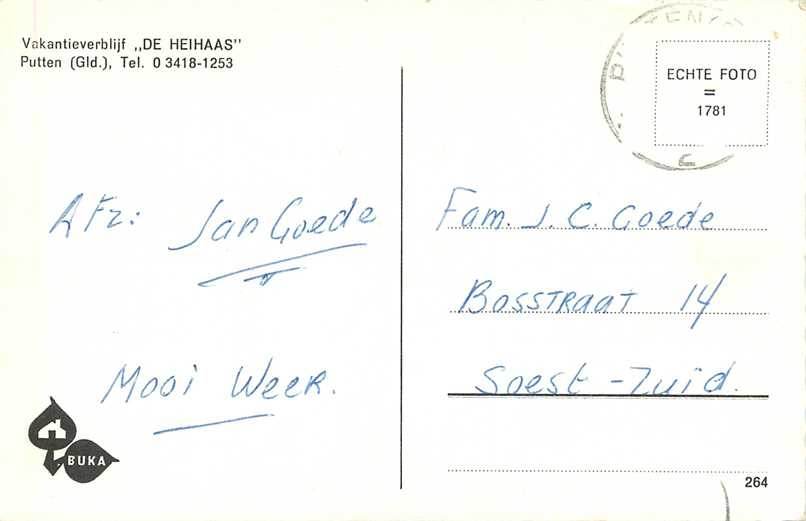 Vakantieverblijf „DE HEIHAAS"
Putten (Gld.), Tel. 0 3418-1253
ECHTE FOTO
=
1781
Afz: Jan Goede
Mooi Weer.
Fam. J. C. Goede
Bosstraat 14
Soest - Zuid.
BUKA
264